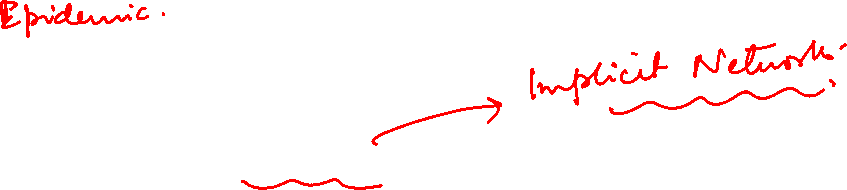 Epidemic.
Implicit Network.